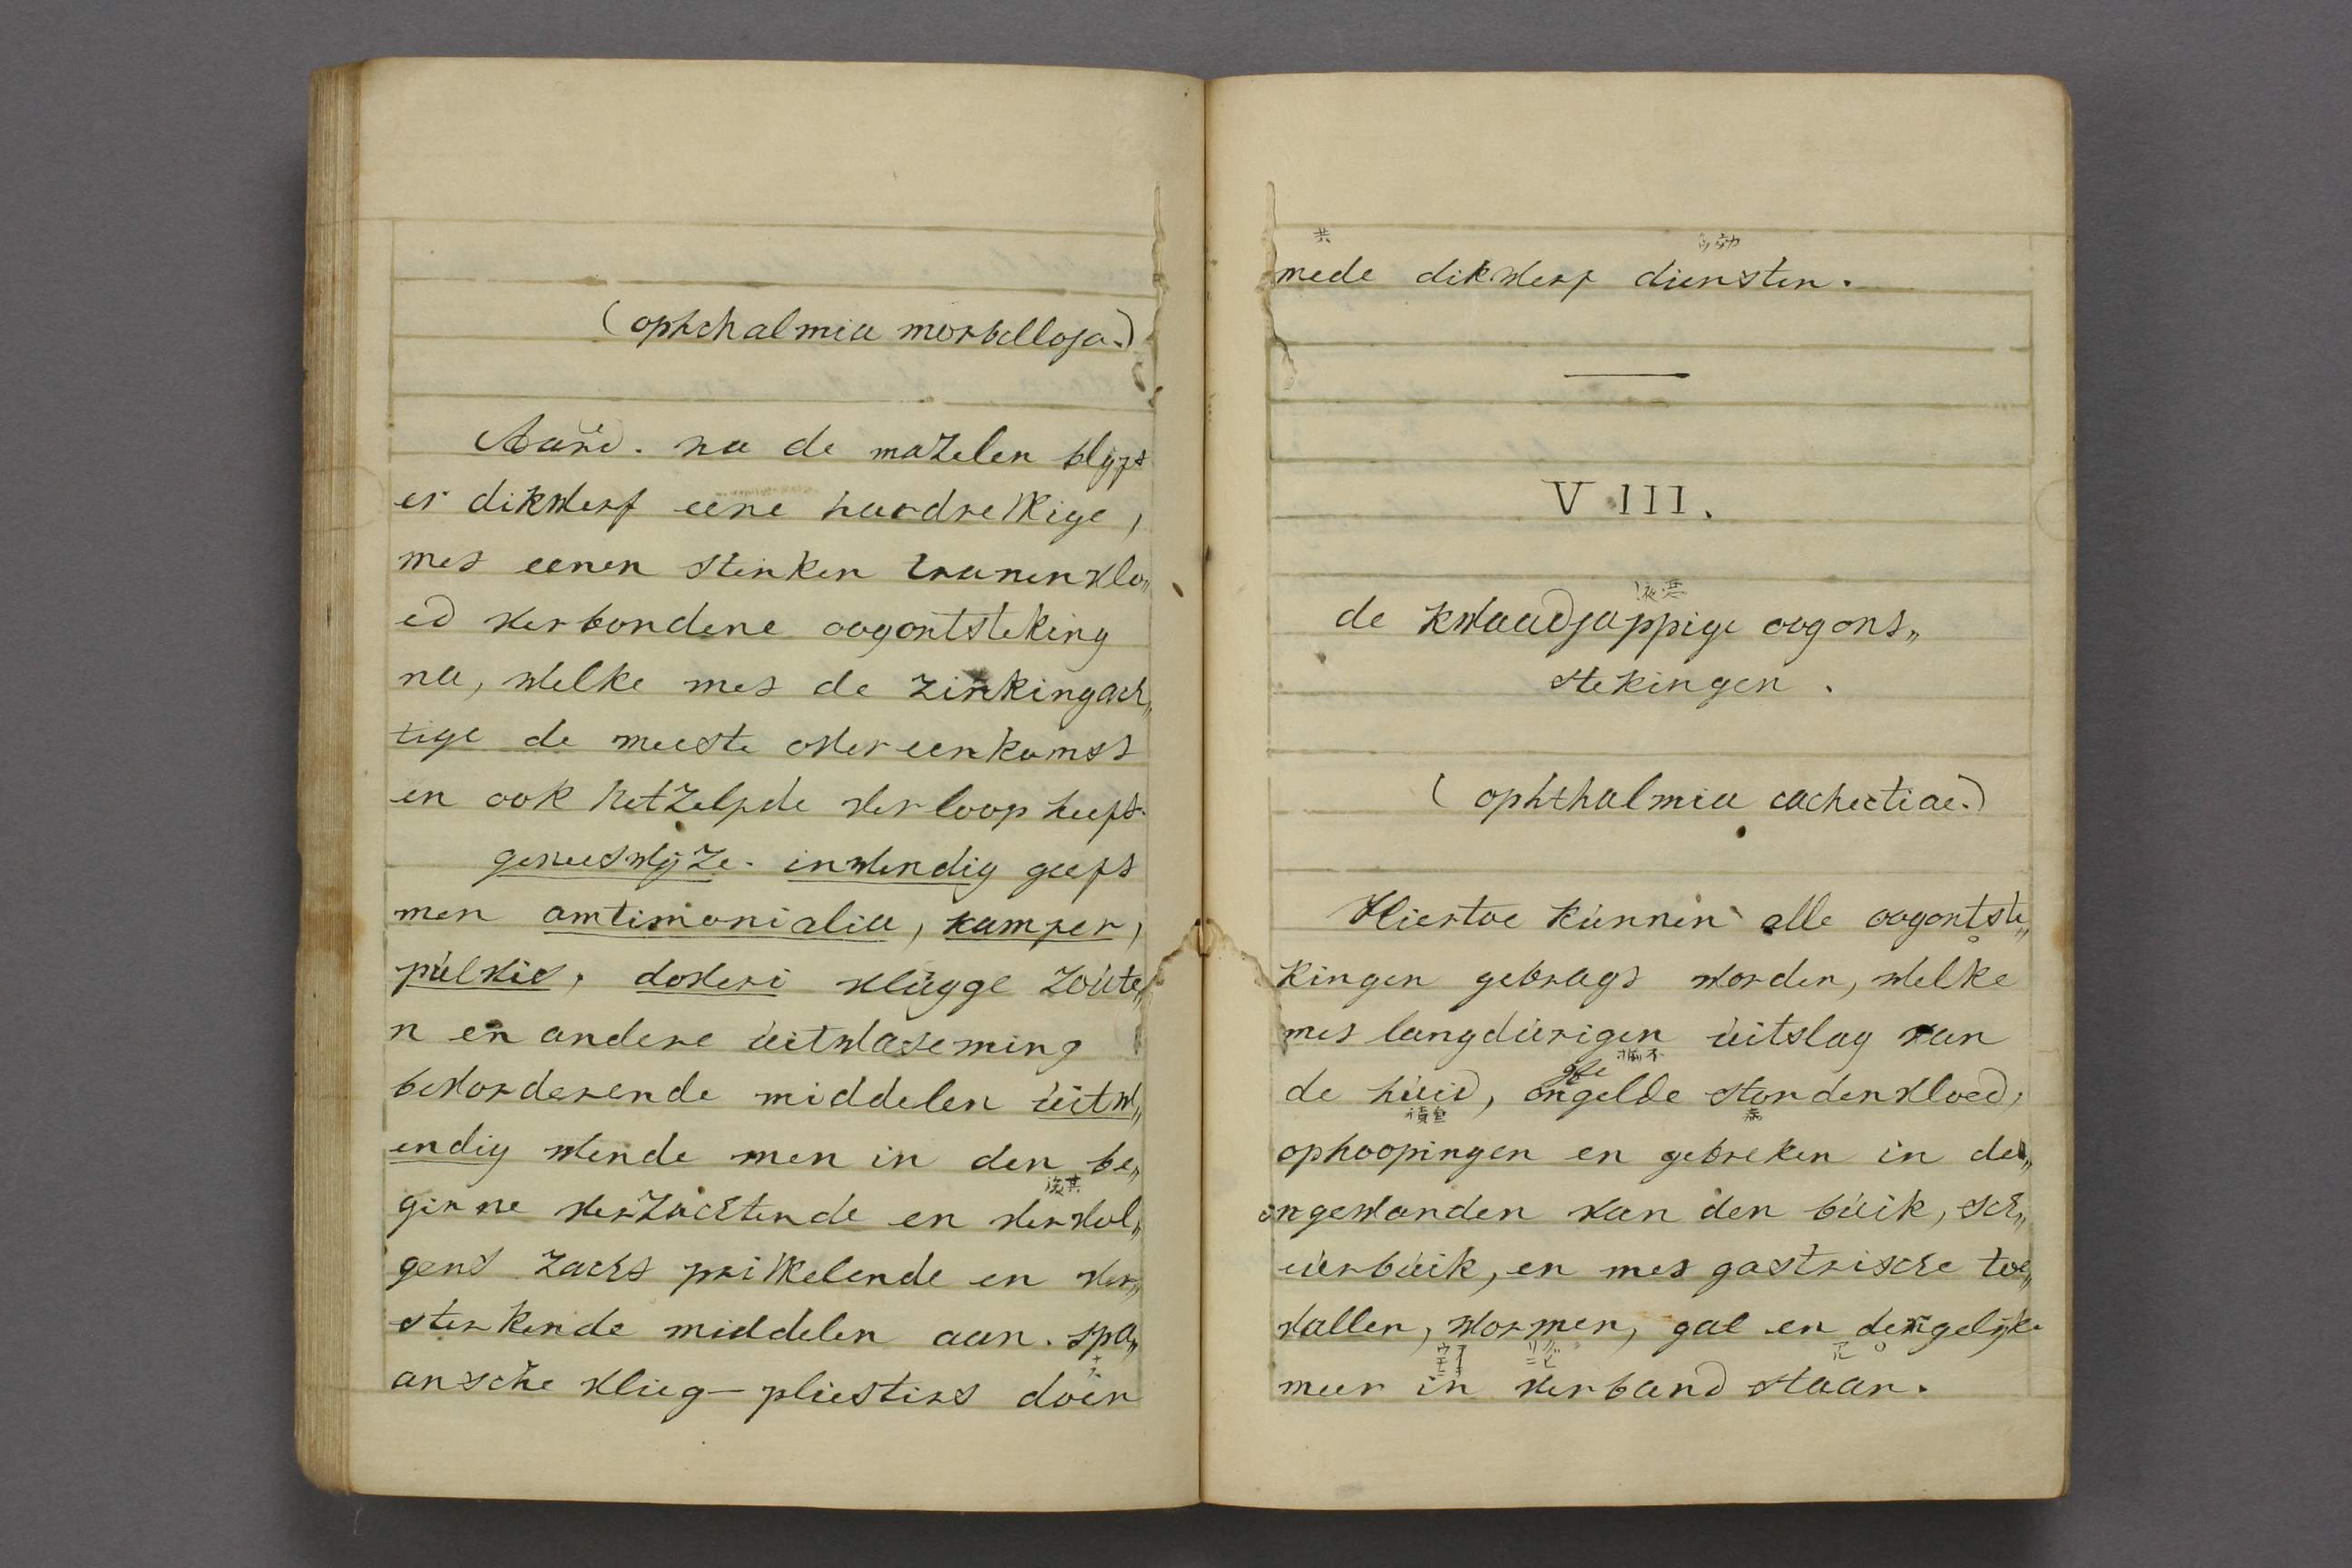 (ophthalmia morbillosa.)
Aard. na de mazelen blijft
er dikwerf eene hardnekkige,
met eenen stinken tranenvlo„
ed verbondene oogontsteking
na, welke met de zinkingach„
tige de meeste overeenkomst
en ook hetzelfde verloop heeft.
geneeswijze. inwendig geeft
men amtimonialia, kamfer,
pulvis, doveri vlugge zoute„
n en andere uitwaseming
bevorderende middelen uitw„
endig wende men in den be„
ginne verzachtende en vervol„
gend zacht prikkelende en ver„
sterkende middelen aan. spa„
ansche vlieg-pliesters doen
mede dikwerf diensten.
VIII.
de kwaadsappige oogont„
stekingen.
(ophthalmia cachectiae.)
Hiertoe kunnen alle oogontste„
kingen gebragt worden, welke
met langdurigen uitslag van
de huid, ongelde stondenvloed,
ophoopingen en gebreken in de„
ingewanden van den buik, sch„
uerbuik, en met gastrische toe„
vallen, wormen, gal en dergelijke
meer in verband staan.